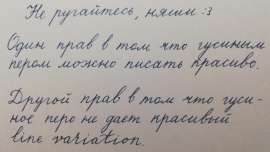 Не ругайтесь, няши :3
Один прав в том что гусиным
пером можно писать красиво.
Другой прав в том что гуси-
ное перо не дает красивый
line variation.